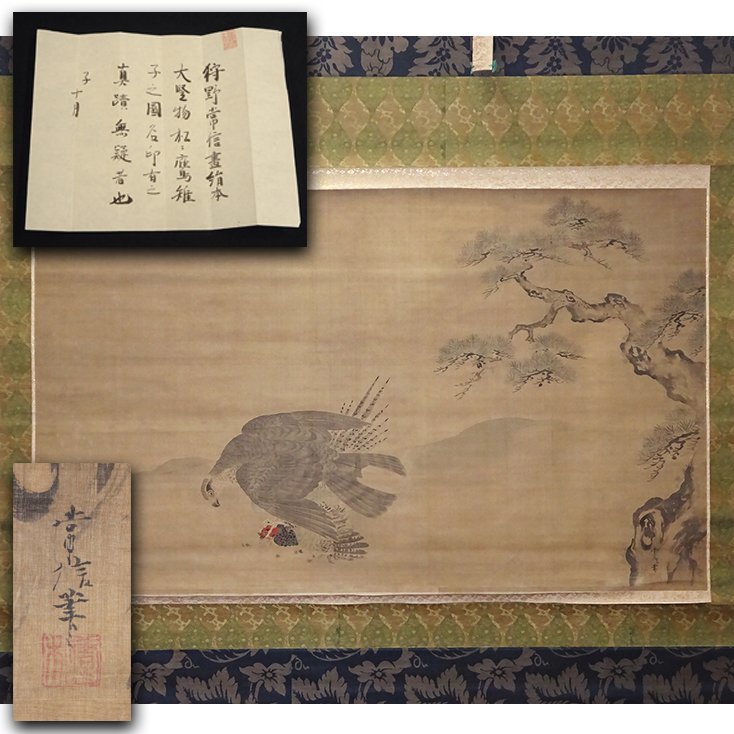 狩野常信畫絹本
大竪物松ニ鷹雉
子之圖名印有之
真蹟無疑者也
子十月
常信筆